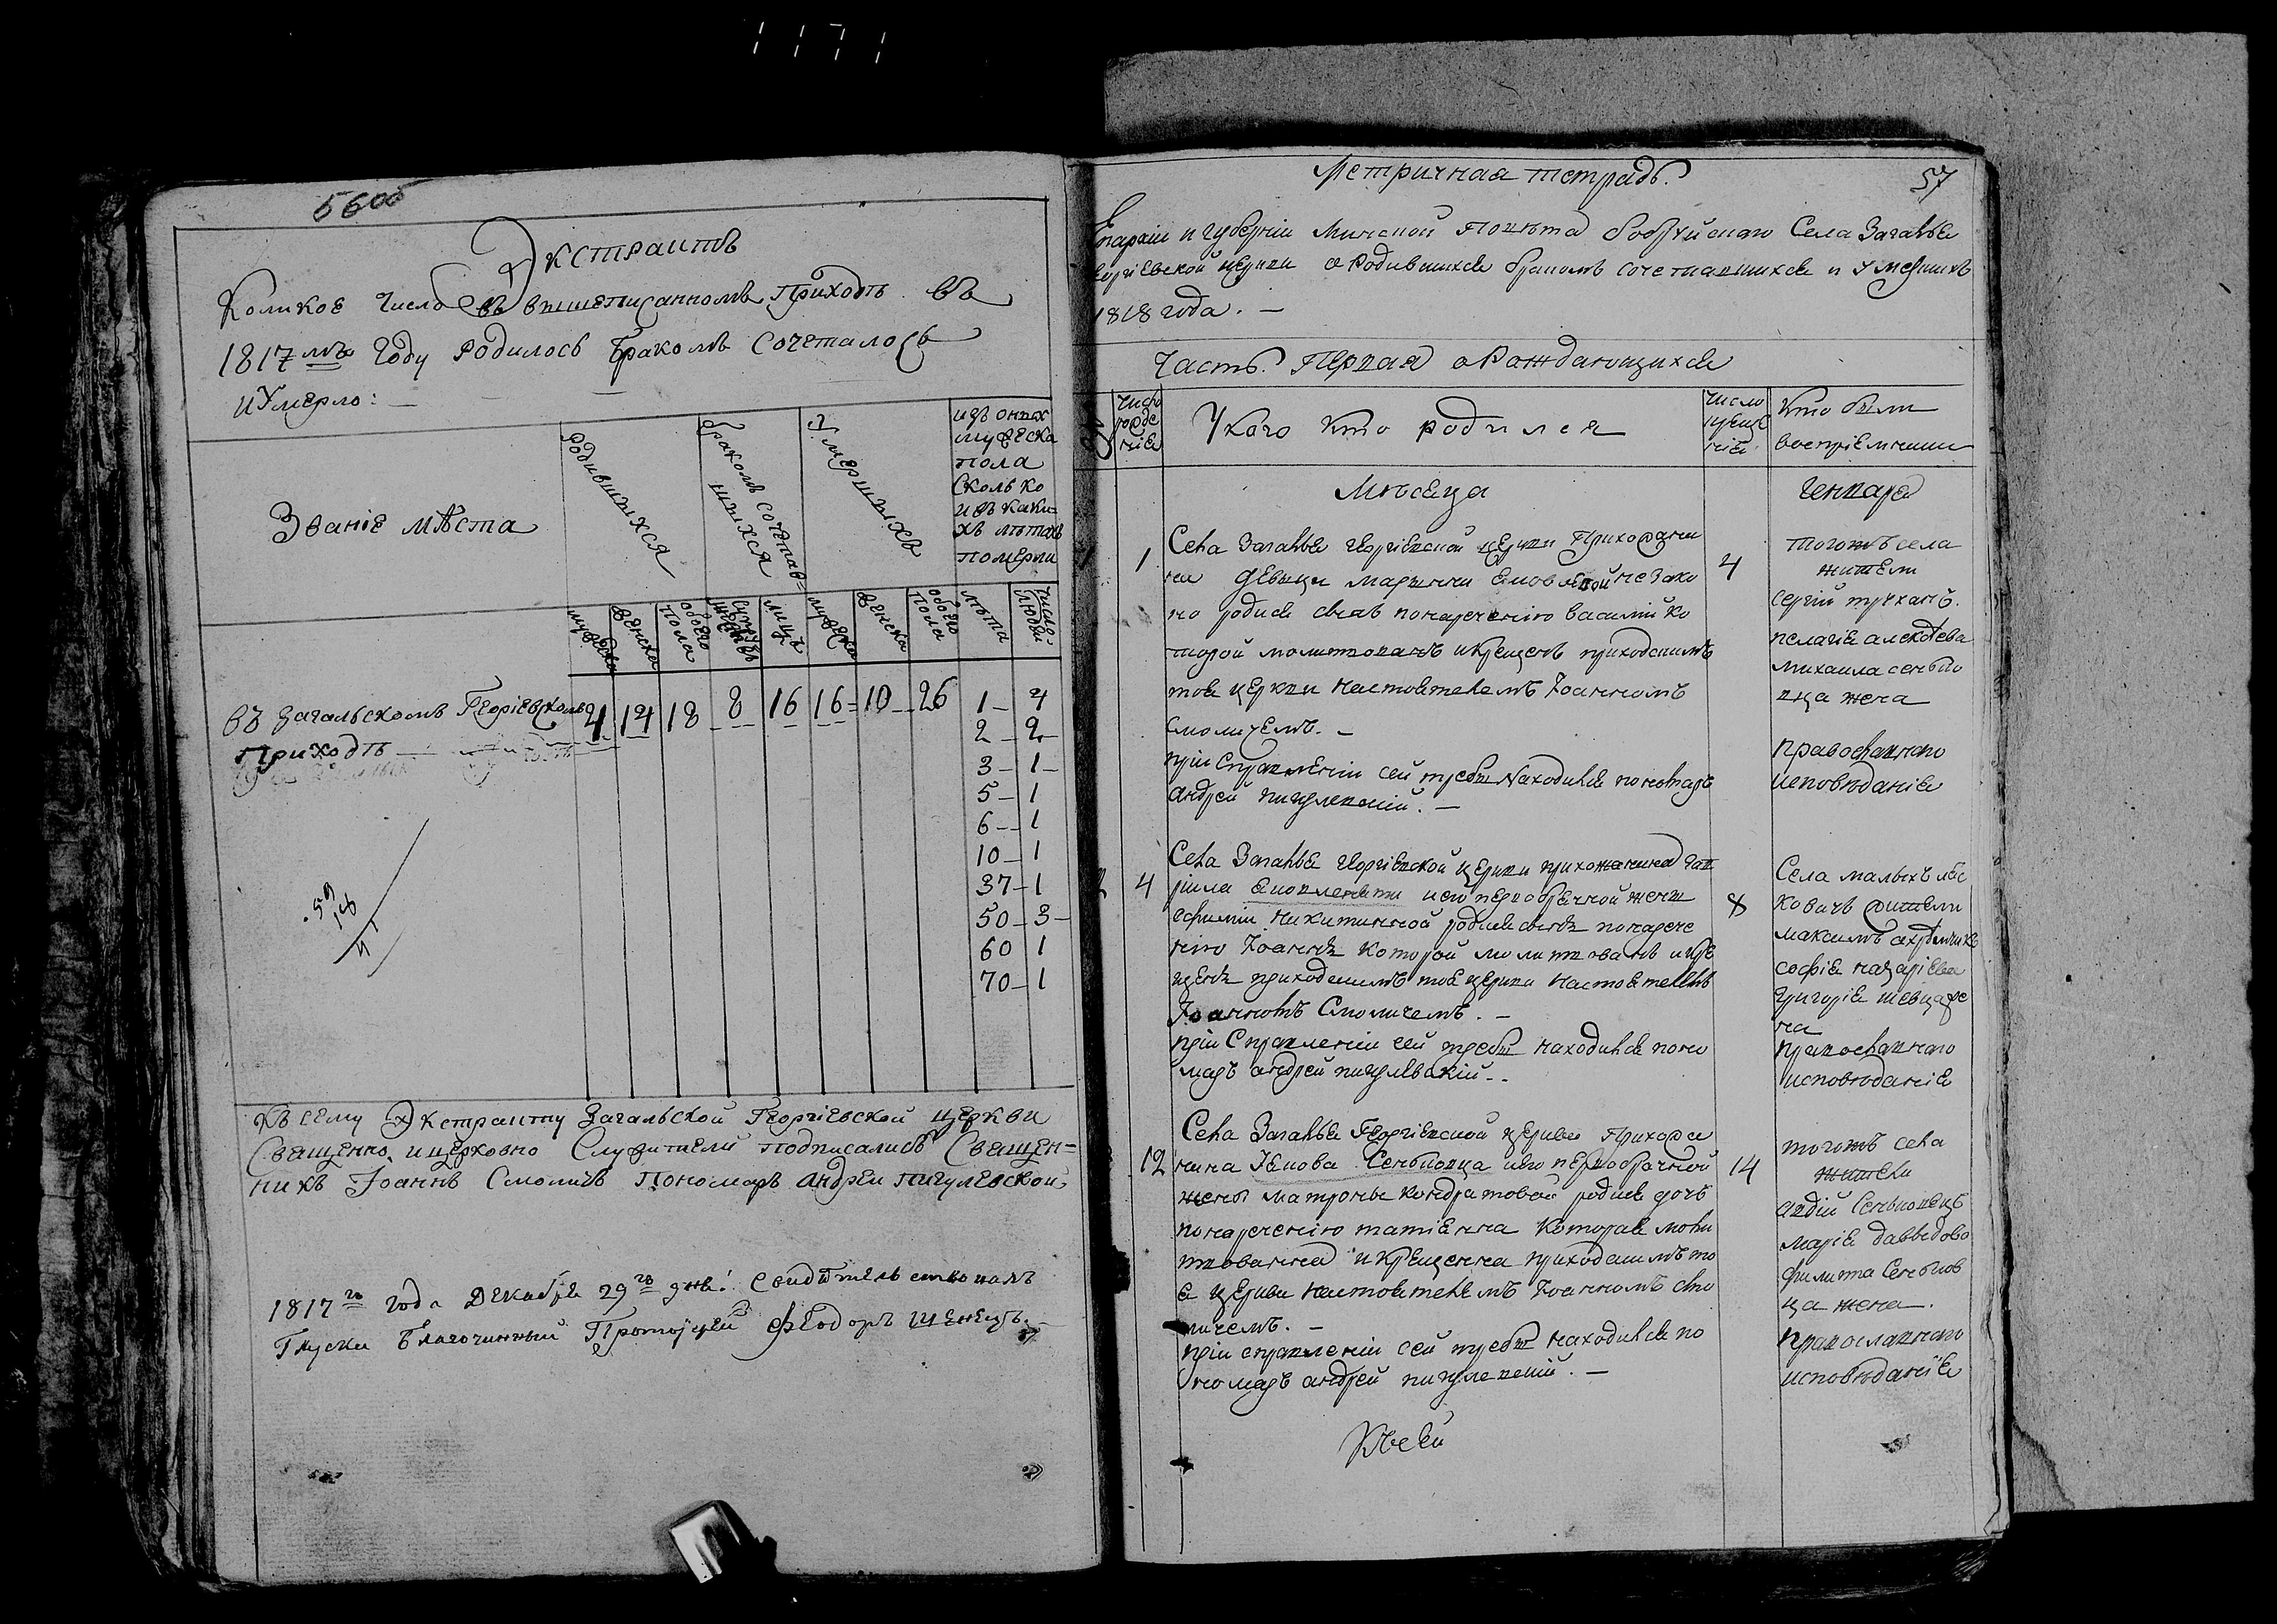 56 об
Экстрактъ
Коликое число въ вышеписанномъ Приходѣ въ
1817мъ Году Родилось Бракомъ Сочеталось
и Умерло: —
Званіе мѣста
Родившыхся
бракомъ сочетав=
шыхся
Умершыхъ
изъ оныхъ
мужеска
пола
сколько
и въ каки=
хъ лѣтахъ
померли
мужеска
женска
обоего
пола
лицъ
мужеска
женска
обоего
пола
лѣта
число
людей
въ Загальскомъ Георіевскомъ 4 14 18 8 16 16 = 10 26 1 — 4
Приходѣ — 2 — 2
3 — 1
5 — 1
6 — 1
10 — 1
37 — 1
50 — 3
60 1
70 — 1
59
18
41
Къ сему Экстракту Загальской Георгіевской церкви
Священно и церковно Служители подписались Священ=
никъ Іоаннъ Смоличъ Пономаръ Андрей Пигулевской
1817го года Декабря 29го дня. Свидѣтельствовалъ
Глуски Благочинный Протоіерей Феодоръ Шенецъ.
Метричная тетрадь.
57
Епархіи и губерніи Минской Повѣта бобруйскаго Села Загалья
Георгіевской церкви о Родившихся бракомъ сочетавшихся и Умершихъ
1818 года. —
Часть Первая о Рождающихся
число
рожде
нія
У кого кто родился
число
креще
нія
Кто были
воспріемники
Мѣсяца
Генваря
1
Села Загалья георгіевской церкви Прихожанки
девицы Марьяны незако
но родися сынъ понареченію василій ко
торой молитвованъ и крещенъ приходскимъ
тоя церкви настоятелемъ Іоанномъ
смоличемъ. —
при Справленіи сей требы находился пономаръ
андрей пигулевскій. —
4
тогожъ села
жители
сергій труханъ.
пелагія алексѣева
михаила сенько
вца жена
православнаго
исповѣданія
4
Села Загалья георгіевской церкви прихожанина гав
ріила и его первобрачной жены
Ефиміи Никитинной родися сынъ понарече
нію Іоаннъ которой молитвованъ и кре
щенъ приходскимъ тоя церкви настоятелемъ
Іоанномъ Смоличемъ. —
при Справленіи сей требы находился поно
маръ андрей пигулевскій. —
8
Села малыхъ
ковичъ жители
максимъ
софія назаріева
григорія шевца же
на
православнаго
исповѣданія
12
Села Загалья Георгіевской церкви Прихожа
нина Сеньковца и его первобрачной
жены матроны кондратовой родися дочь
понареченію татіанна которая моли
твованна и крещенна приходскимъ то
я церкви настоятелемъ Іоанномъ смо
личемъ. —
при справленіи сей требы находился по
номаръ андрей пигулевскій. —
14
тогожъ села
жители
авдій Сеньковецъ
марія давыдова
филиппа Сеньков
ца жена.
православнаго
исповѣданія